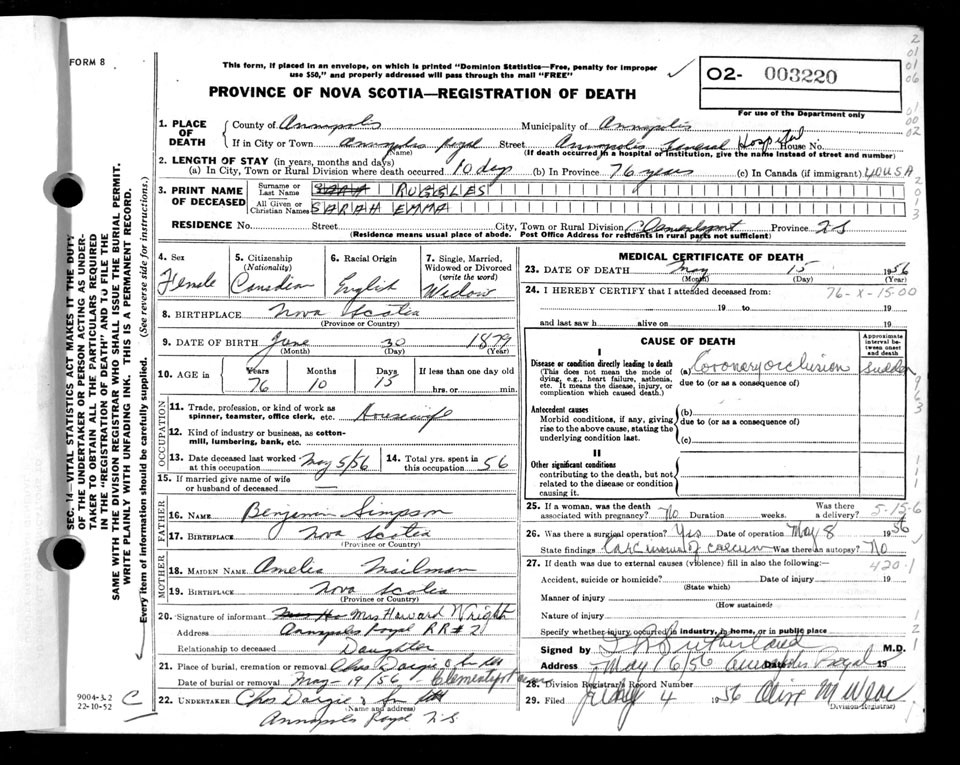 FORM 8
This form, if placed in an envelope, on which is printed "Dominion Statistics—Free, penalty for improper
use $50," and properly addressed will pass through the mail "FREE"
02- 003220
PROVINCE OF NOVA SCOTIA—REGISTRATION OF DEATH
For use of the Department only
1. PLACE OF DEATH
County of Annapolis Municipality of Annapolis
If in City or Town Annapolis Royal Street Annapolis General Hospital House No.
(Name) (If death occurred in a hospital or institution, give the name instead of street and number)
2. LENGTH OF STAY (in years, months and days)
(a) In City, Town or Rural Division where death occurred 10 days (b) In Province 76 years (c) In Canada (if immigrant) 40 USA
3. PRINT NAME OF DECEASED
Surname or Last Name SARAH RUGGLES
All Given or Christian Names SARAH EMMA
RESIDENCE No. Street City, Town or Rural Division Clementsport Province NS
(Residence means usual place of abode. Post Office Address for residents in rural parts not sufficient)
4. Sex
Female
5. Citizenship
(Nationality)
Canadian
6. Racial Origin
English
7. Single, Married,
Widowed or Divorced
(write the word)
Widow
8. BIRTHPLACE Nova Scotia
(Province or Country)
9. DATE OF BIRTH June 30 1879
(Month) (Day) (Year)
10. AGE in
Years Months Days If less than one day old
76 10 15 hrs. or min.
OCCUPATION
11. Trade, profession, or kind of work as
spinner, teamster, office clerk, etc. Housewife
12. Kind of industry or business, as cotton-
mill, lumbering, bank, etc.
13. Date deceased last worked
at this occupation May 5/56
14. Total yrs. spent in
this occupation 56
15. If married give name of wife
or husband of deceased —
FATHER
16. NAME Benjamin Simpson
17. BIRTHPLACE Nova Scotia
(Province or Country)
MOTHER
18. MAIDEN NAME Amelia Mailman
19. BIRTHPLACE Nova Scotia
(Province or Country)
20. Signature of informant Mrs Howard Wright
Address Annapolis Royal RR#2
Relationship to deceased Daughter
21. Place of burial, cremation or removal
Date of burial or removal May-19/56 Clementsport
22. UNDERTAKER Chas Dargie & Son
(Name and address)
Annapolis Royal N.S
9004-3.2
22-10-52
C
MEDICAL CERTIFICATE OF DEATH
23. DATE OF DEATH May 15 1956
(Month) (Day) (Year)
24. I HEREBY CERTIFY that I attended deceased from: 76-X-15-00
19 to 19
and last saw h alive on 19
CAUSE OF DEATH
Approximate interval between onset and death
I
Disease or condition directly leading to death
(This does not mean the mode of
dying, e.g., heart failure, asthenia,
etc. It means the disease, injury, or
complication which caused death.)
(a) Coronary occlusion Sudden
due to (or as a consequence of)
Antecedent causes
Morbid conditions, if any, giving
rise to the above cause, stating the
underlying condition last.
(b)
due to (or as a consequence of)
(c)
II
Other significant conditions
contributing to the death, but not
related to the disease or condition
causing it.
25. If a woman, was the death
associated with pregnancy? No Duration weeks. Was there
a delivery?
5-15-6
26. Was there a surgical operation? Yes Date of operation May 8 1956
State findings Carcinoma of caecum Was there an autopsy? No
27. If death was due to external causes (violence) fill in also the following: 420.1
Accident, suicide or homicide? Date of injury 19
(State which)
Manner of injury
(How sustained)
Nature of injury
Specify whether injury occurred in industry, in home, or in public place
Signed by Sutherland M.D.
Address May 16/56 Annapolis Royal Date 19
28. Division Registrar's Record Number
29. Filed July 4 1956
Division Registrar)
SEC. 14—VITAL STATISTICS ACT MAKES IT THE DUTY
OF THE UNDERTAKER OR PERSON ACTING AS UNDER-
TAKER TO OBTAIN ALL THE PARTICULARS REQUIRED
IN THE "REGISTRATION OF DEATH" AND TO FILE THE
SAME WITH THE DIVISION REGISTRAR WHO SHALL ISSUE THE BURIAL PERMIT.
WRITE PLAINLY WITH UNFADING INK. THIS IS A PERMANENT RECORD.
Every item of information should be carefully supplied. (See reverse side for instructions.)